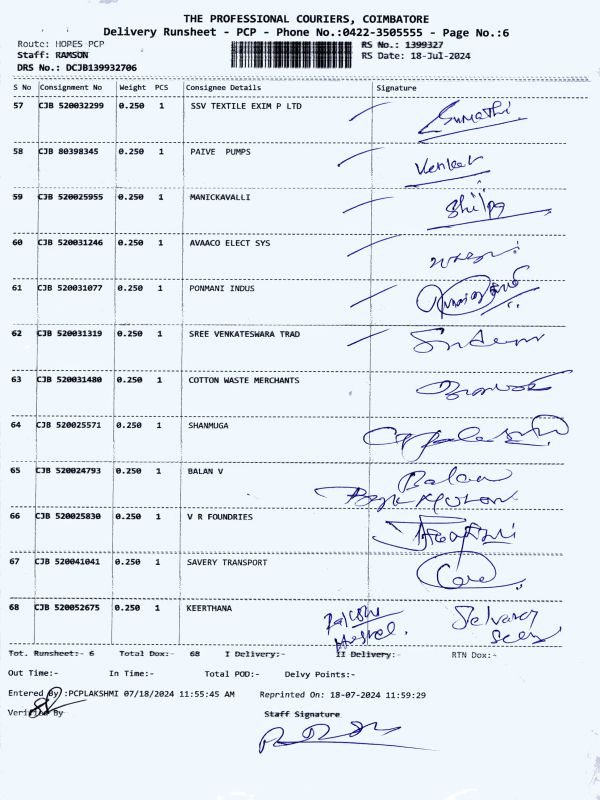 THE PROFESSIONAL COURIERS, COIMBATORE
Delivery Runsheet - PCP - Phone No.:0422-3505555 - Page No.:6
Route: HOPES PCP RS No.: 1399327
Staff: RAMSON RS Date: 18-Jul-2024
DRS No.: DCJB139932706
S No Consignment No Weight PCS Consignee Details Signature
57 CJB 520032299 0.250 1 SSV TEXTILE EXIM P LTD Sumathi
58 CJB 80398345 0.250 1 PAIVE PUMPS Venkat
59 CJB 520025955 0.250 1 MANICKAVALLI Shilpa
60 CJB 520031246 0.250 1 AVAACO ELECT SYS
61 CJB 520031077 0.250 1 PONMANI INDUS
62 CJB 520031319 0.250 1 SREE VENKATESWARA TRAD
63 CJB 520031480 0.250 1 COTTON WASTE MERCHANTS
64 CJB 520025571 0.250 1 SHANMUGA
65 CJB 520024793 0.250 1 BALAN V Balan
66 CJB 520025830 0.250 1 V R FOUNDRIES
67 CJB 520041041 0.250 1 SAVERY TRANSPORT
68 CJB 520052675 0.250 1 KEERTHANA
Tot. Runsheet:- 6 Total Dox:- 68 I Delivery:- II Delivery:- RTN Dox:-
Out Time:- In Time:- Total POD:- Delvy Points:-
Entered By :PCPLAKSHMI 07/18/2024 11:55:45 AM Reprinted On: 18-07-2024 11:59:29
Verified By Staff Signature